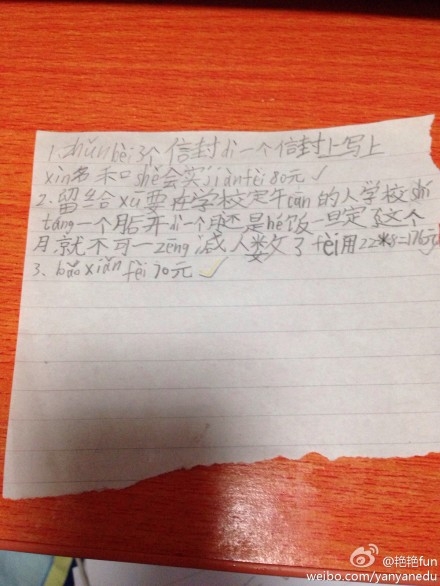 1. zhǔn bèi 3个信封 di一个信封上写上
xìn名 和 shè会实jiàn fèi 80元 ✓
2. 留给 xū要在学校定午cān的人学校shí
táng一个月后开 di一个月还是hé饭一旦定了这个
月就不可一zēng减人数文了 fèi用22*8=176元
3、bǎo xiǎn fèi 70元 ✓
@艳艳fun
weibo.com/yanyanedu